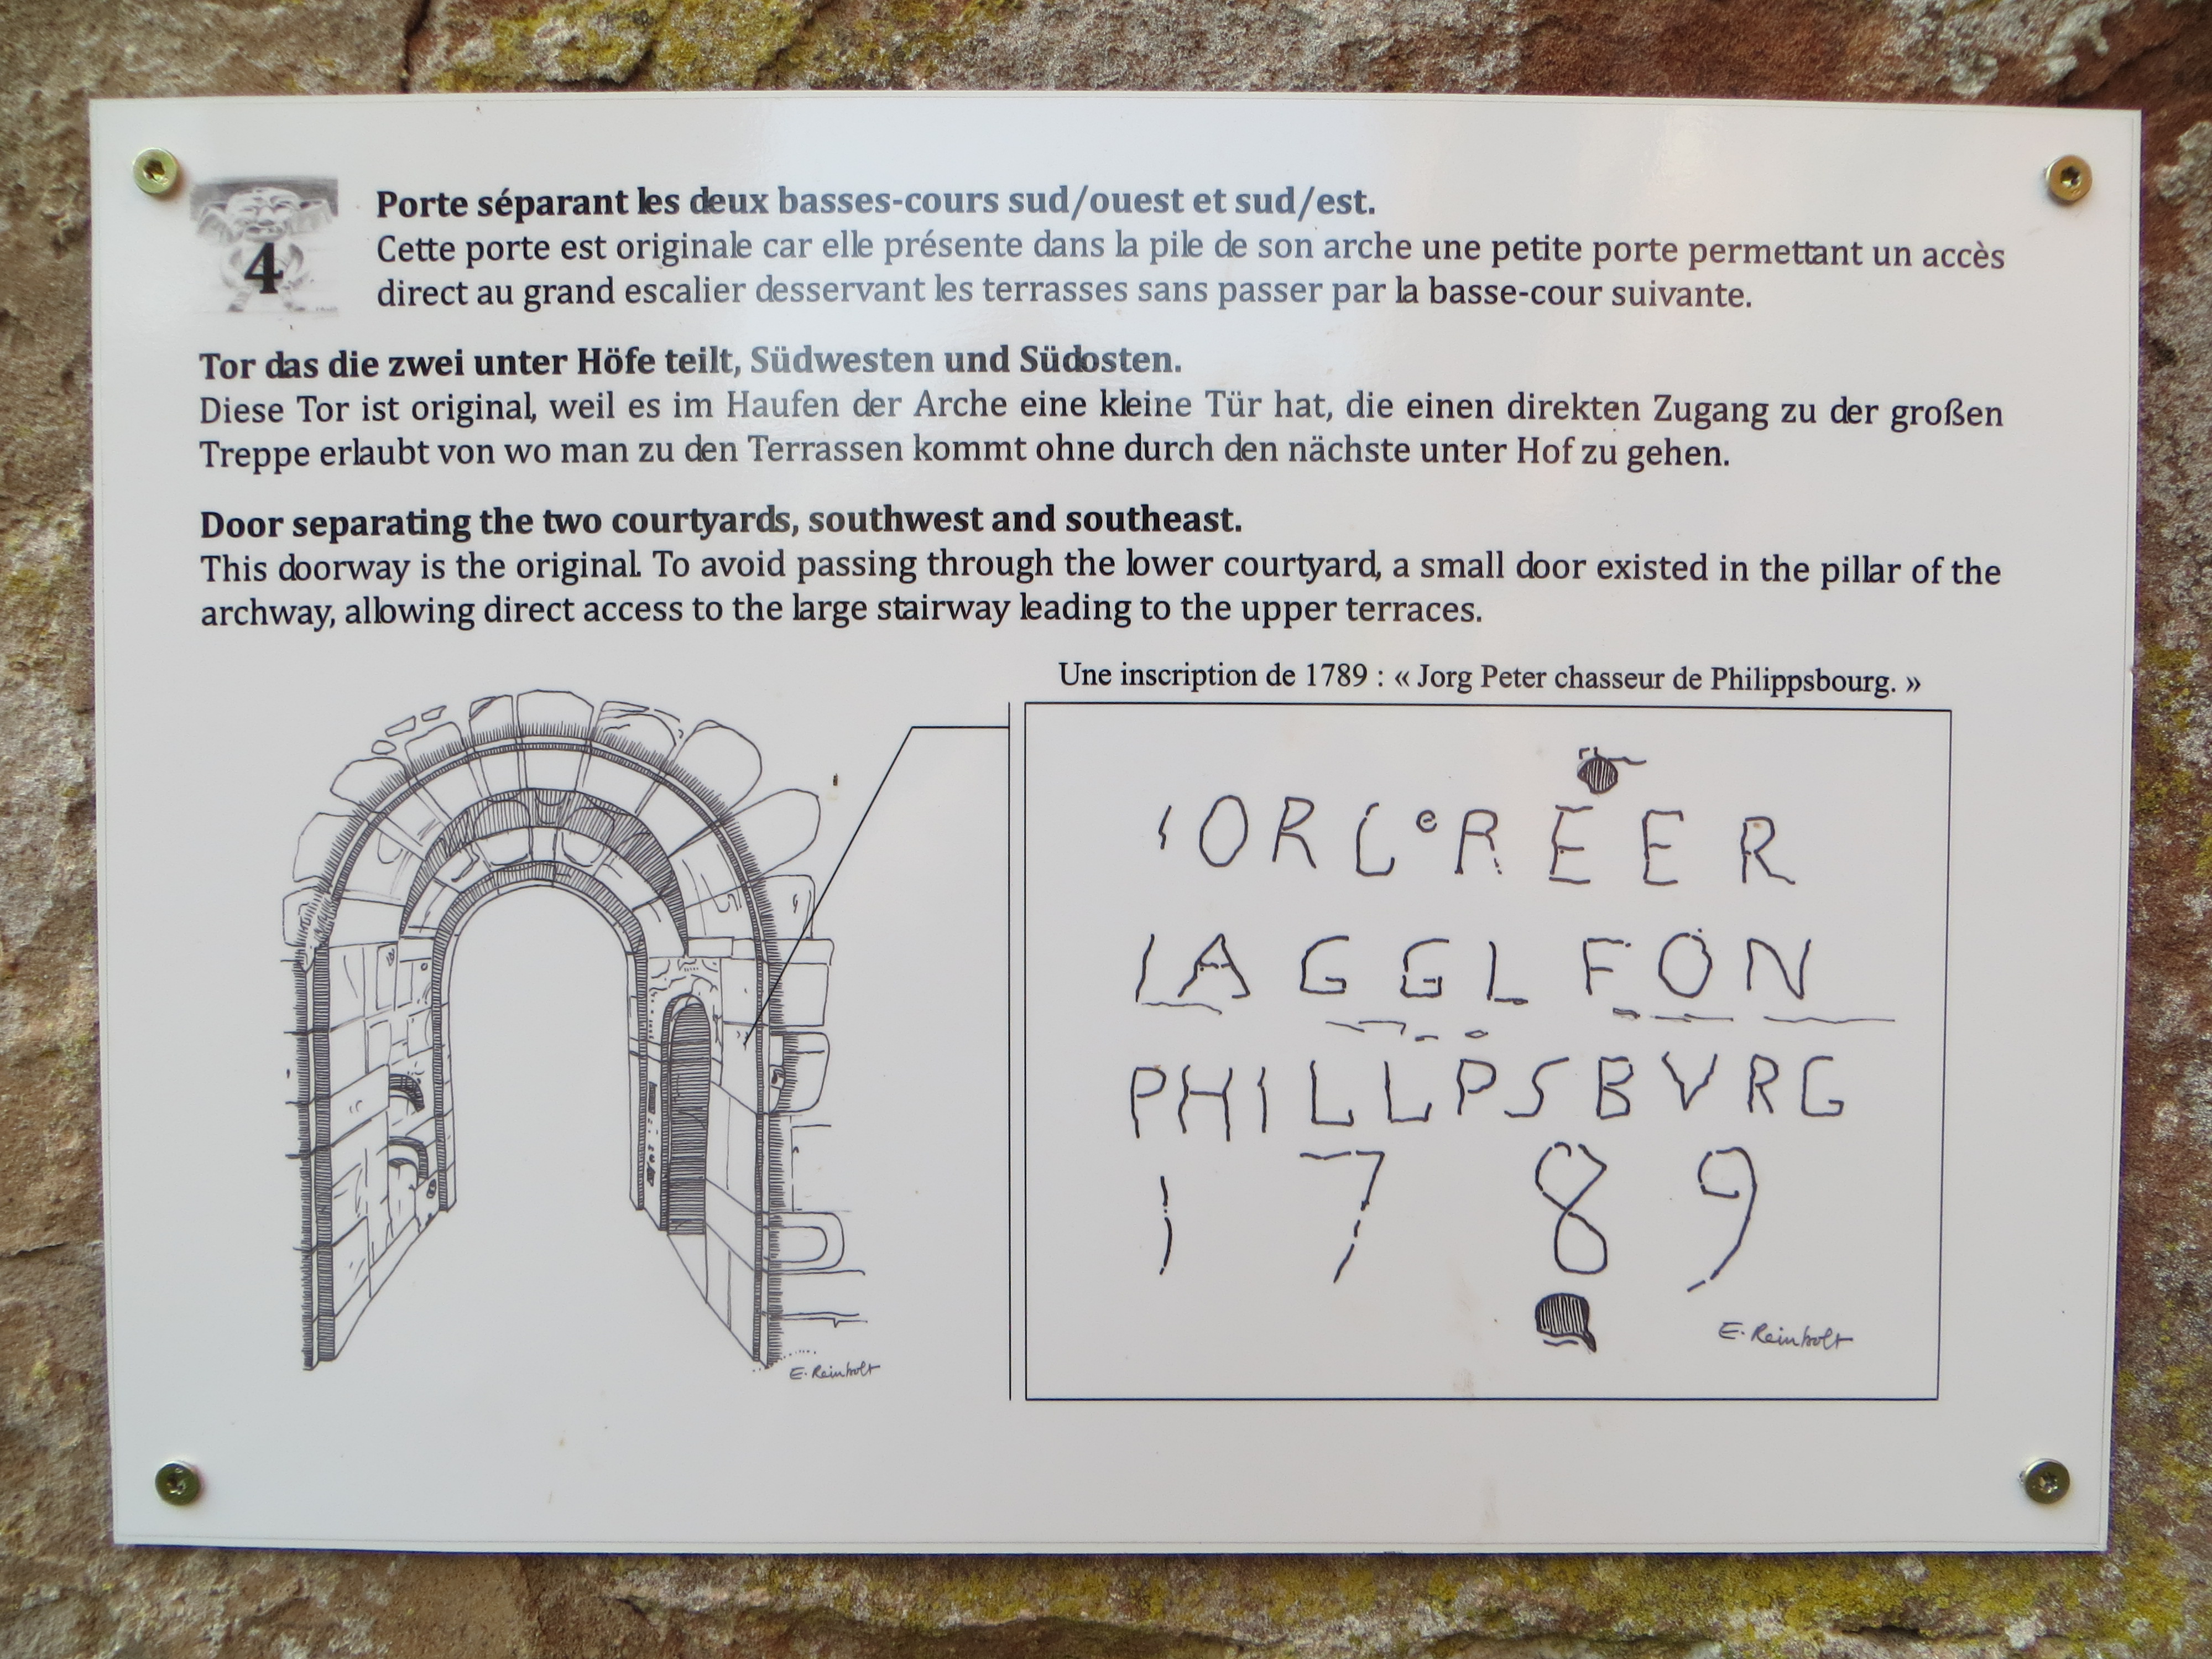 4
Porte séparant les deux basses-cours sud/ouest et sud/est.
Cette porte est originale car elle présente dans la pile de son arche une petite porte permettant un accès
direct au grand escalier desservant les terrasses sans passer par la basse-cour suivante.
Tor das die zwei unter Höfe teilt, Südwesten und Südosten.
Diese Tor ist original, weil es im Haufen der Arche eine kleine Tür hat, die einen direkten Zugang zu der großen
Treppe erlaubt von wo man zu den Terrassen kommt ohne durch den nächste unter Hof zu gehen.
Door separating the two courtyards, southwest and southeast.
This doorway is the original. To avoid passing through the lower courtyard, a small door existed in the pillar of the
archway, allowing direct access to the large stairway leading to the upper terraces.
Une inscription de 1789 : « Jorg Peter chasseur de Philippsbourg. »
IORL e R E E R
IAGGL FON
PHILLPSBVRG
1789
E. Reinbolt
E. Reinbolt